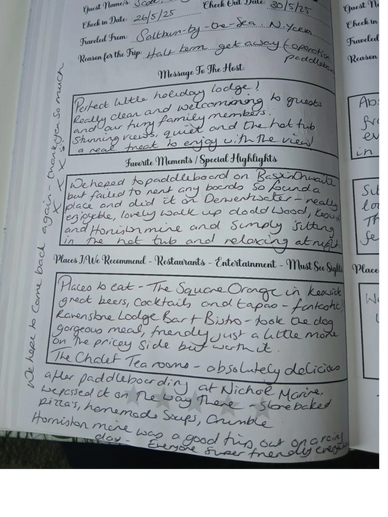 Guest Name's
Check In Date: 26/5/25 Check Out Date: 30/5/25
Traveled From: Saltburn-by-the-sea. N.Yorks
Reason for the Trip: Half term get away (operation
paddleboard
Message To The Host
Perfect little holiday lodge!
Really clean and welcomming to guests
and our furry family members.
Stunning views, quiet and the hot tub
a real treat to enjoy with the view
Favorite Moments / Special Highlights
We hoped to paddleboard on Bassenthwaite
but failed to rent any boards so found a
place and did it on Derwentwater - really
enjoyable, lovely walk up dodd wood,
and Honiston mine and simply sitting
in the hot tub and relaxing at night
Places I/We Recommend - Restaurants - Entertainment - Must See Sights
Places to eat - The Square Orange in Keswick
great beers, cocktails and tapas - fantastic
Ravenstone Lodge Bar + Bistro - took the dog
gorgeous meal, friendly just a little more
on the pricey side but worth it.
The Chalet Tea rooms - absolutely delicious
after paddleboarding at Nichol Marine
we passed it on the way there - stonebaked
pizza's, homemade soups, crumble
Honiston mine was a good trip out on a rainy
day - Everyone super friendly
We hope to come back again - thank you so much
x x x